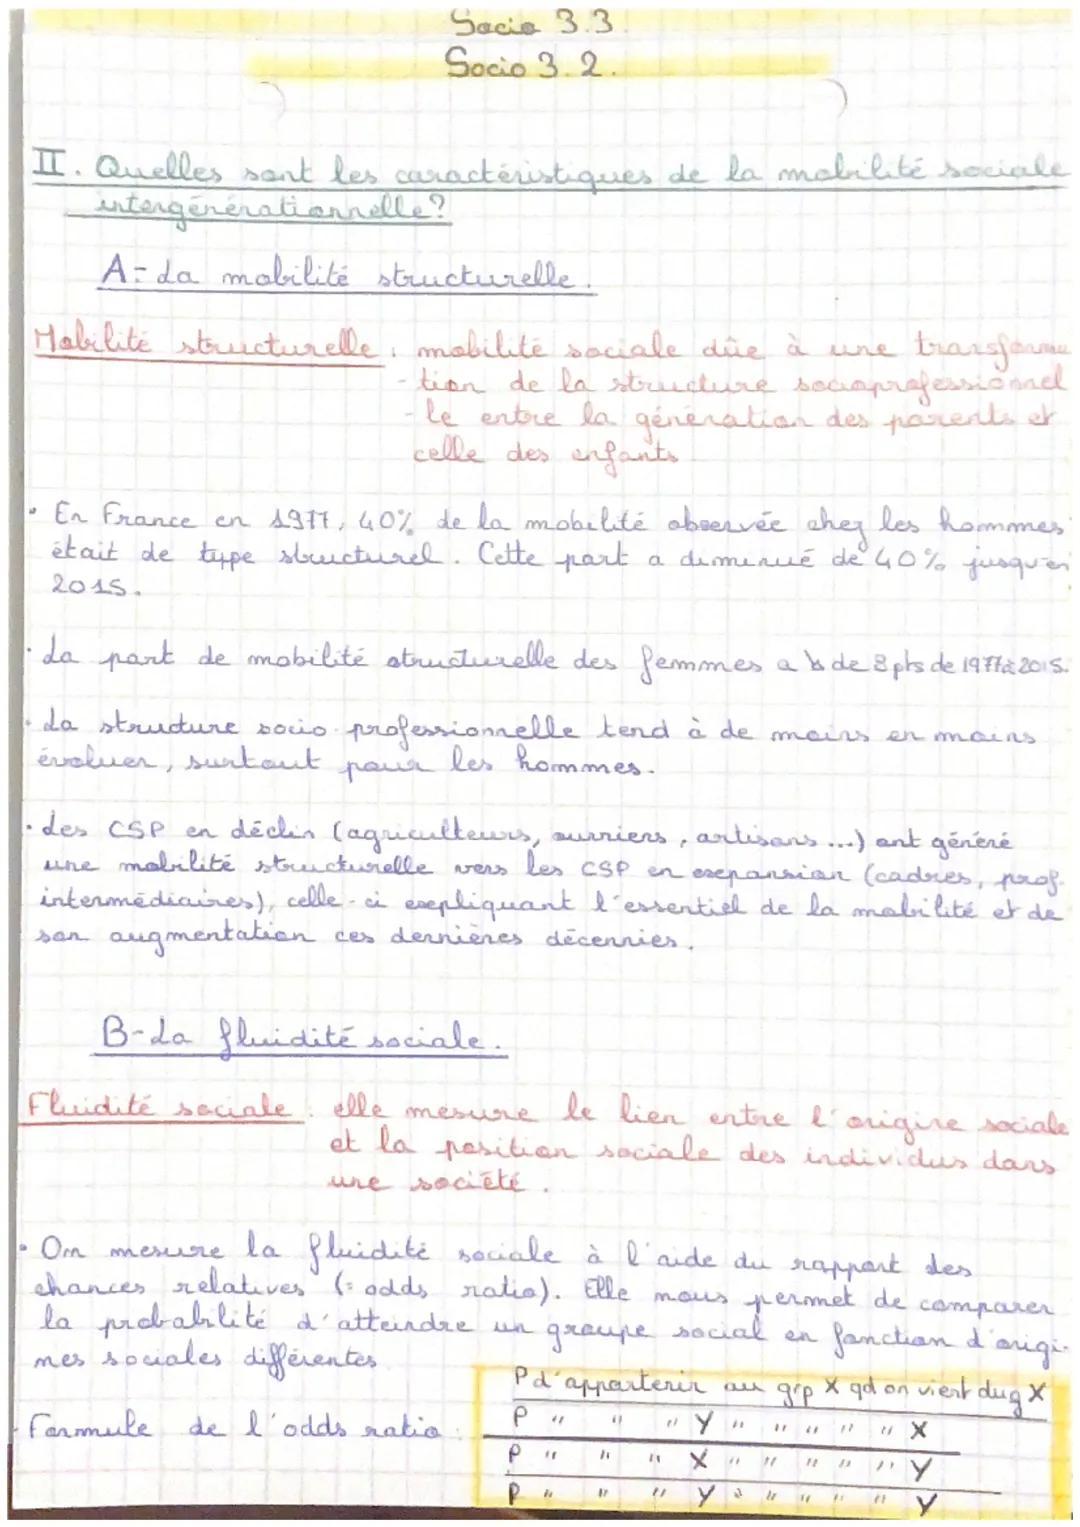 Socio 3.3.
Socio 3.2.
II. Quelles sont les caractéristiques de la mobilité sociale
intergénérationnelle?
A- La mobilité structurelle.
Mobilité structurelle : mobilité sociale dûe à une transforma
-tion de la structure socioprofessionnel
-le entre la génération des parents et
celle des enfants
• En France en 1977, 40% de la mobilité observée chez les hommes
était de type structurel. Cette part a diminué de 40% jusqu'en
2015.
• La part de mobilité structurelle des femmes a ↘ de 8 pts de 1977 à 2015.
• La structure socio-professionnelle tend à de moins en moins
évoluer, surtout pour les hommes.
• Les CSP en déclin (agriculteurs, ouvriers, artisans ...) ont généré
une mobilité structurelle vers les CSP en expansion (cadres, prof.
intermédiaires), celle-ci expliquant l'essentiel de la mobilité et de
son augmentation ces dernières décennies.
B- La fluidité sociale.
Fluidité sociale : elle mesure le lien entre l'origine sociale
et la position sociale des individus dans
une société.
• On mesure la fluidité sociale à l'aide du rapport des
chances relatives (= odds ratio). Elle nous permet de comparer
la probabilité d'atteindre un groupe social en fonction d'origi-
nes sociales différentes
P d'appartenir au grp X qd on vient du g X
Formule de l'odds ratio :
P " " " Y " " " " " X
P " " " X " " " " " Y
P " " " Y " " " " " Y